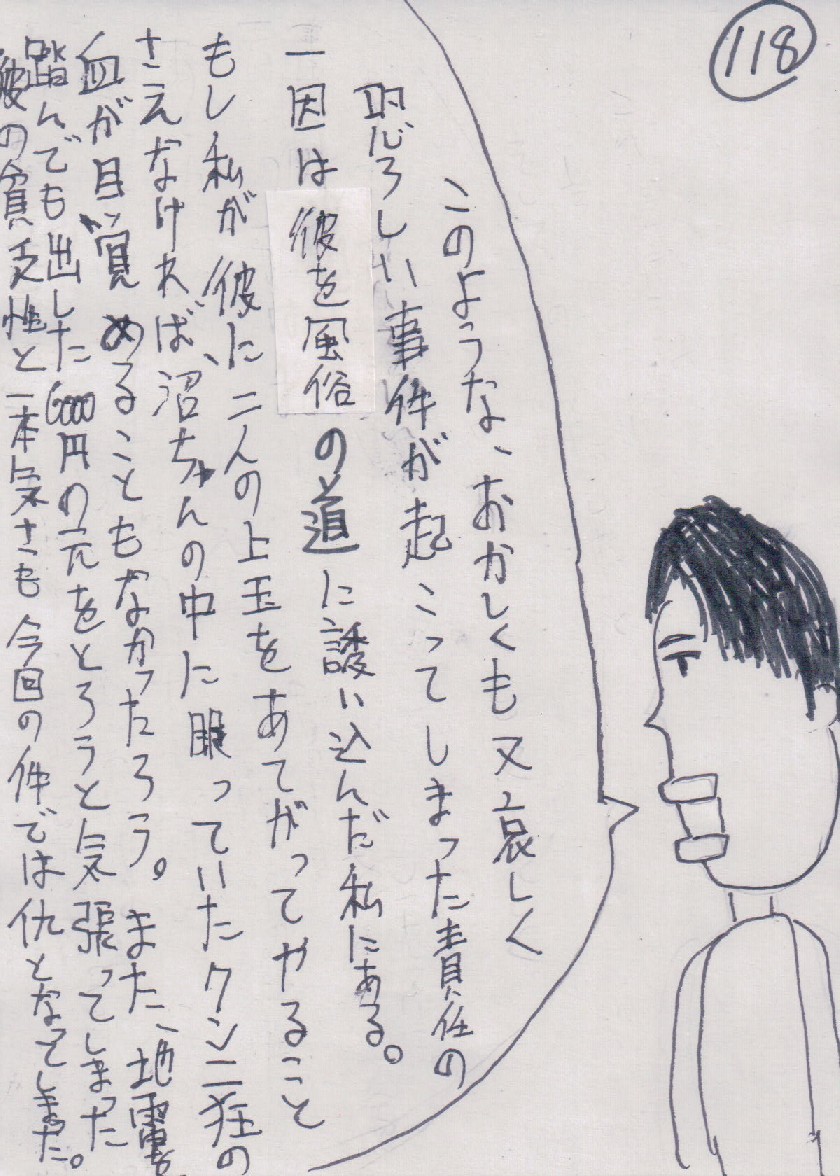 118
このような、おかしくも又哀しく
恐ろしい事件が起こってしまった責任の
一因は彼を風俗の道に誘い込んだ私にある。
もし私が彼に二人の上玉をあてがってやること
さえなければ、沼ちゃんの中に眠っていたクンニ狂の
血が目覚めることもなかったろう。また、地雷を
踏んでも出した6000円の元をとろうと気張ってしまった
彼の貧乏性と一本気さも今回の件では仇となってしまった。